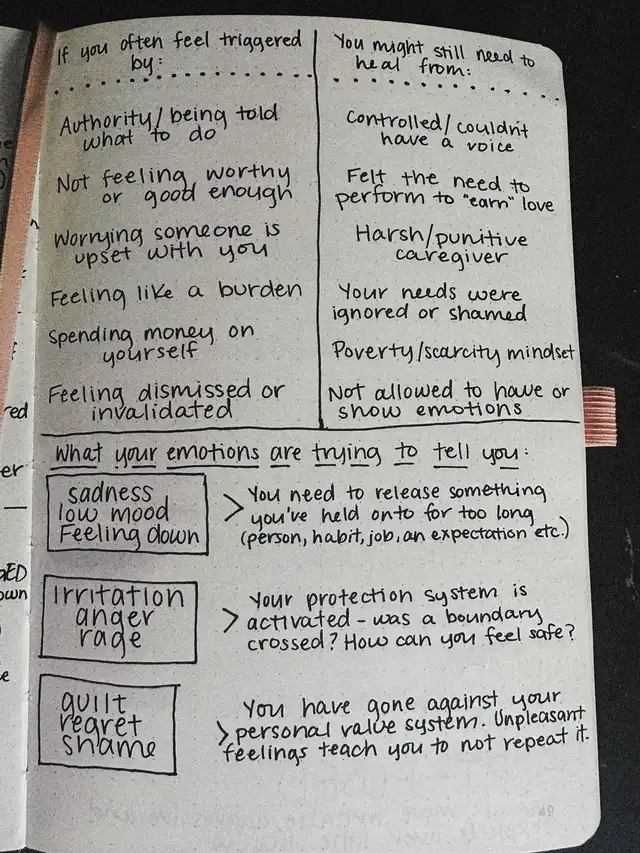 If you often feel triggered
by:
Authority/being told
what to do
Not feeling worthy
or good enough
Worrying someone is
upset with you
Feeling like a burden
Spending money on
yourself
Feeling dismissed or
invalidated
You might still need to
heal from:
Controlled/couldn't
have a voice
Felt the need to
perform to "earn" love
Harsh/punitive
caregiver
Your needs were
ignored or shamed
Poverty/scarcity mindset
Not allowed to have or
show emotions
What your emotions are trying to tell you:
sadness
low mood
Feeling down
> You need to release something
you've held onto for too long
(person, habit, job, an expectation etc.)
Irritation
anger
rage
> Your protection system is
activated - was a boundary
crossed? How can you feel safe?
guilt
regret
shame
You have gone against your
> personal value system. Unpleasant
feelings teach you to not repeat it.
49